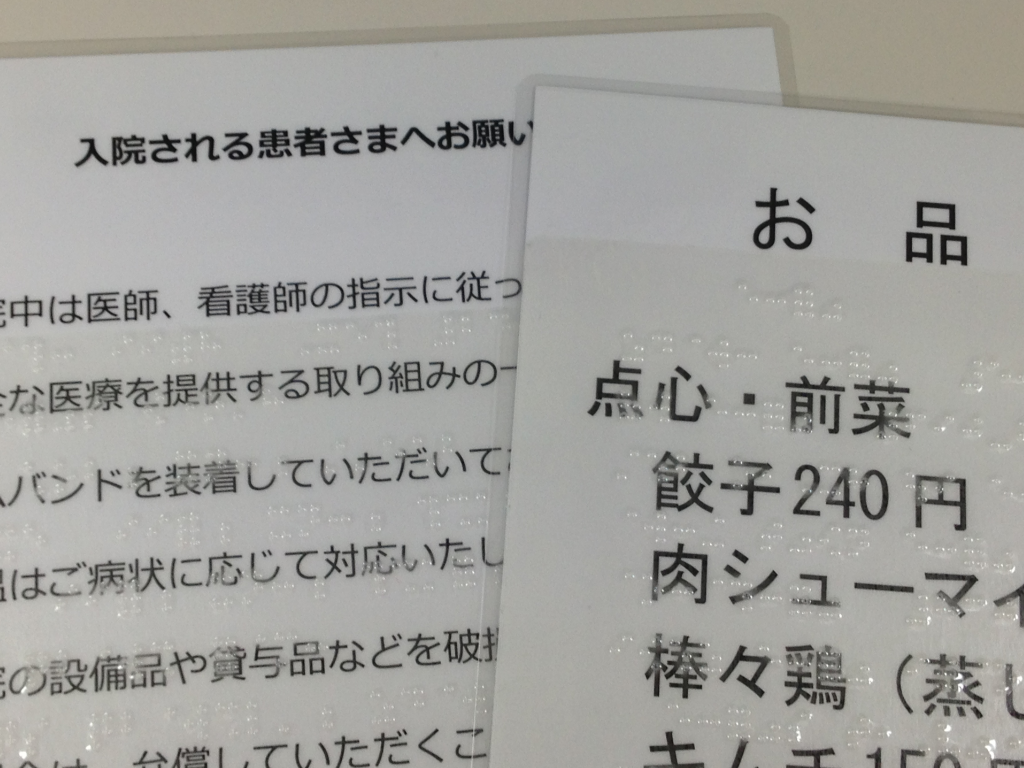 入院される患者さまへお願い
院中は医師、看護師の指示に従っ
全な医療を提供する取り組みの一
ムバンドを装着していただいて
温はご病状に応じて対応いたし
院の設備品や貸与品などを破損
合は、弁償していただくこ
お 品
点心・前菜
餃子240円
肉シューマイ
棒々鶏（蒸し
キムチ150円